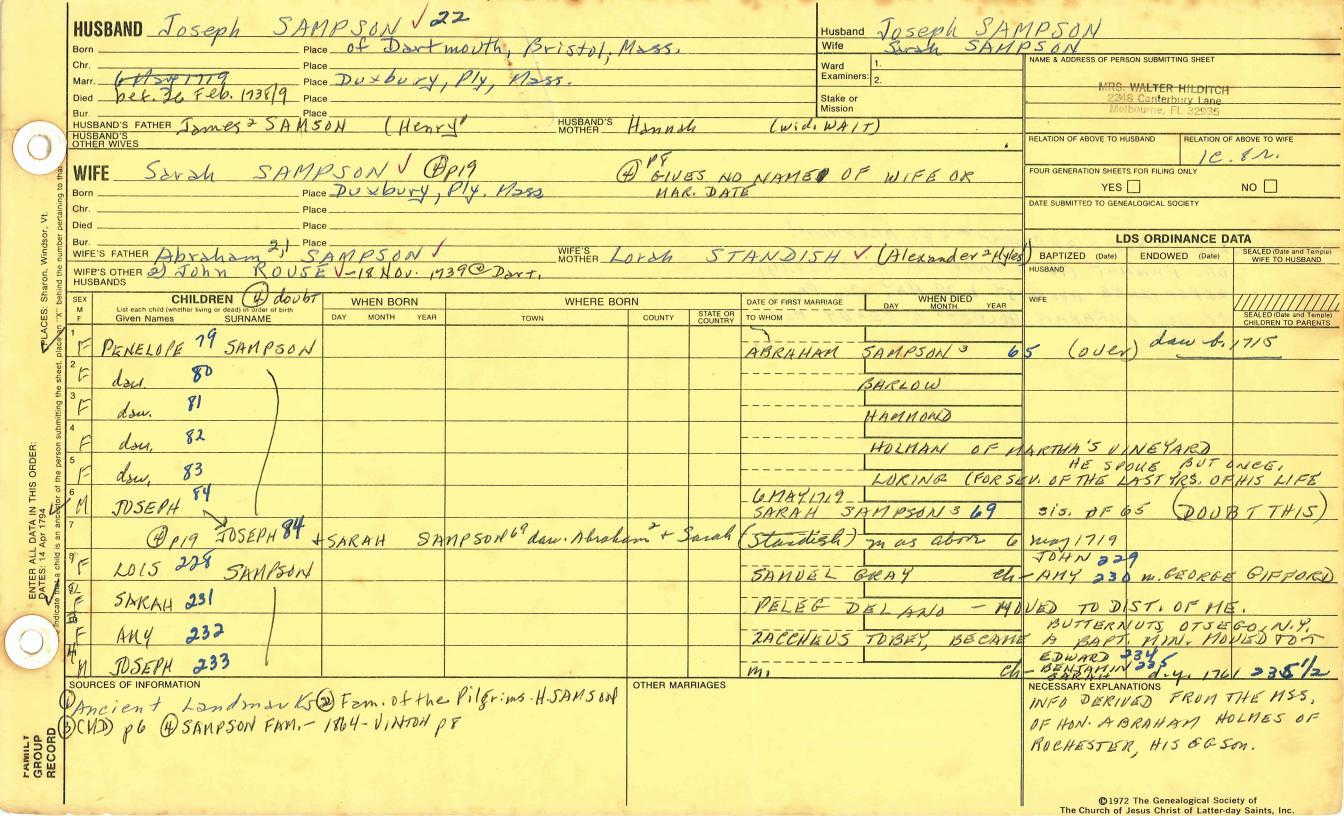 HUSBAND Joseph SAMPSON ✓ 22
Born Place of Dartmouth, Bristol, Mass.
Chr. Place
Marr. 6 May 1719 Place Duxbury, Ply, Mass.
Died bet. 26 Feb. 1738/9 Place
Bur. Place
HUSBAND'S FATHER James² SAMSON (Henry¹) HUSBAND'S MOTHER Hannah (wid. WAIT)
HUSBAND'S OTHER WIVES
Husband Joseph SAMPSON
Wife Sarah SAMPSON
Ward 1.
Examiners: 2.
Stake or Mission
NAME & ADDRESS OF PERSON SUBMITTING SHEET
MRS. WALTER HILDITCH
2248 Canterbury Lane
Melbourne, FL 32935
RELATION OF ABOVE TO HUSBAND RELATION OF ABOVE TO WIFE
1c. 8r.
FOUR GENERATION SHEETS FOR FILING ONLY
YES NO
DATE SUBMITTED TO GENEALOGICAL SOCIETY
WIFE Sarah SAMPSON ✓ ④ p19 ④ p8 GIVES NO NAME OF WIFE OR
MAR. DATE
Born Place Duxbury, Ply. Mass
Chr. Place
Died Place
Bur. Place
WIFE'S FATHER Abraham 2,1 SAMPSON ✓ WIFE'S MOTHER Lorah STANDISH ✓ (Alexander² Myles¹)
WIFE'S OTHER HUSBANDS 2) John ROUSE ✓ -18 Nov. 1739 @ Dart.
LDS ORDINANCE DATA
BAPTIZED (Date) ENDOWED (Date) SEALED (Date and Temple) WIFE TO HUSBAND
HUSBAND
WIFE
SEALED (Date and Temple) CHILDREN TO PARENTS
SEX M F CHILDREN ④ doubt WHEN BORN WHERE BORN DATE OF FIRST MARRIAGE WHEN DIED
List each child (whether living or dead) in order of birth
Given Names SURNAME DAY MONTH YEAR TOWN COUNTY STATE OR COUNTRY TO WHOM DAY MONTH YEAR
1 F PENELOPE 79 SAMPSON ABRAHAM SAMPSON³ 65 (over) dau b. 1715
2 F dau. 80 BARLOW
3 F dau. 81 HAMMOND
4 F dau. 82 HOLMAN OF MARTHA'S VINEYARD
HE SPOKE BUT ONCE,
5 F dau. 83 LORING (FOR SEV. OF THE LAST YRS. OF HIS LIFE
6 M JOSEPH 84 6 MAY 1719
SARAH SAMPSON³ 69 SIS. OF 65 (DOUBT THIS)
7 ④ p19 JOSEPH 84 + SARAH SAMPSON 69 dau. Abraham² + Sarah (Standish) m as above 6 may 1719
JOHN 229
9 F LOIS 228 SAMPSON SAMUEL GRAY ch- AMY 230 m. GEORGE GIFFORD
F SARAH 231 PELEG DELANO - MOVED TO DIST. OF ME.
BUTTERNUTS OTSEGO, N.Y.
F AMY 232 ZACCHEUS TOBEY, BECAME A BAPT. MIN. MOVED TO ↑
EDWARD 234
M JOSEPH 233 m. ch- BENJAMIN 235
SARAH d.y. 1761 235 1/2
SOURCES OF INFORMATION
① Ancient Landmarks ② Fam. of the Pilgrims - H. SAMSON
③ (MD) p6 ④ SAMPSON FAM. - 1864 - VINTON p8
OTHER MARRIAGES
NECESSARY EXPLANATIONS
INFO DERIVED FROM THE MSS.
OF HON. ABRAHAM HOLMES OF
ROCHESTER, HIS GGSON.
©1972 The Genealogical Society of
The Church of Jesus Christ of Latter-day Saints, Inc.
PLACES: Sharon, Windsor, Vt.
ENTER ALL DATA IN THIS ORDER:
DATES: 14 Apr 1794
FAMILY GROUP RECORD